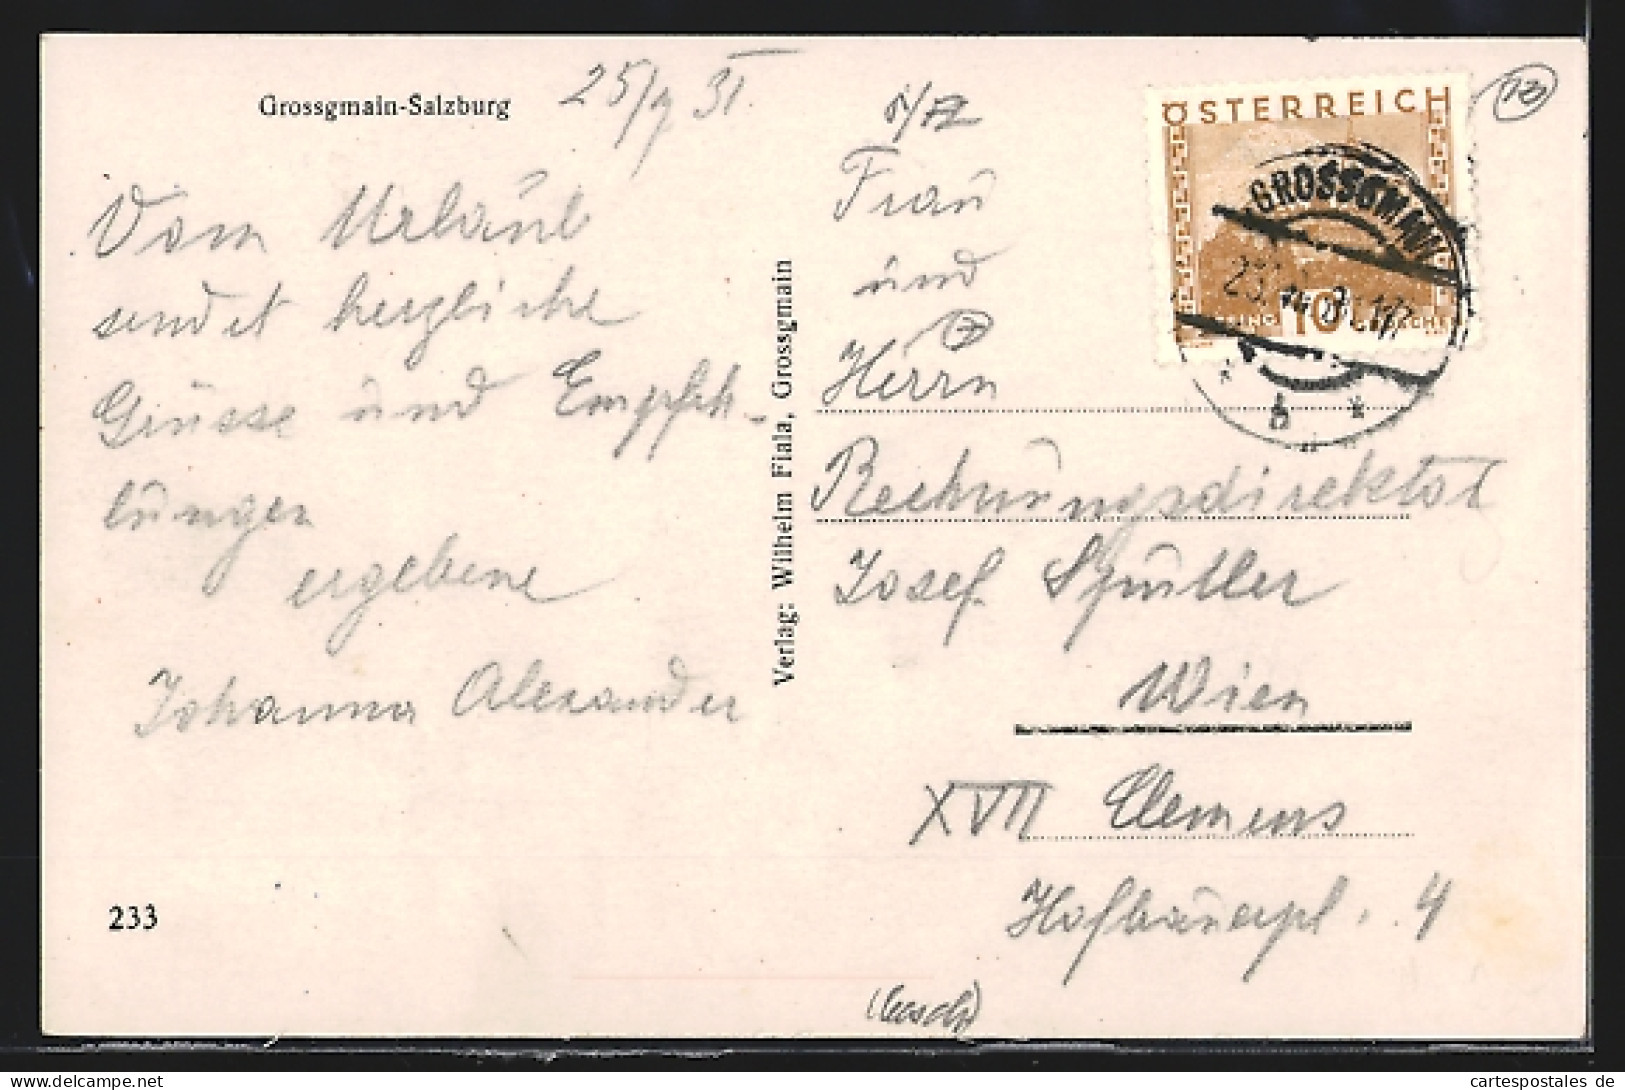 Grossgmain-Salzburg
25/7 31.
Vom Urlaub
sendet herzliche
Grüsse und Empfeh-
lungen
ergebene
Johanna Alexander
233
Verlag: Wilhelm Fiala, Grossgmain
13
ÖSTERREICH
GROSSGMAIN
10
b
Frau
und
Herrn
Rechnungsdirektor
Josef
Wien
XVII Clemens
Hofbauerpl. 4
cartespostales de